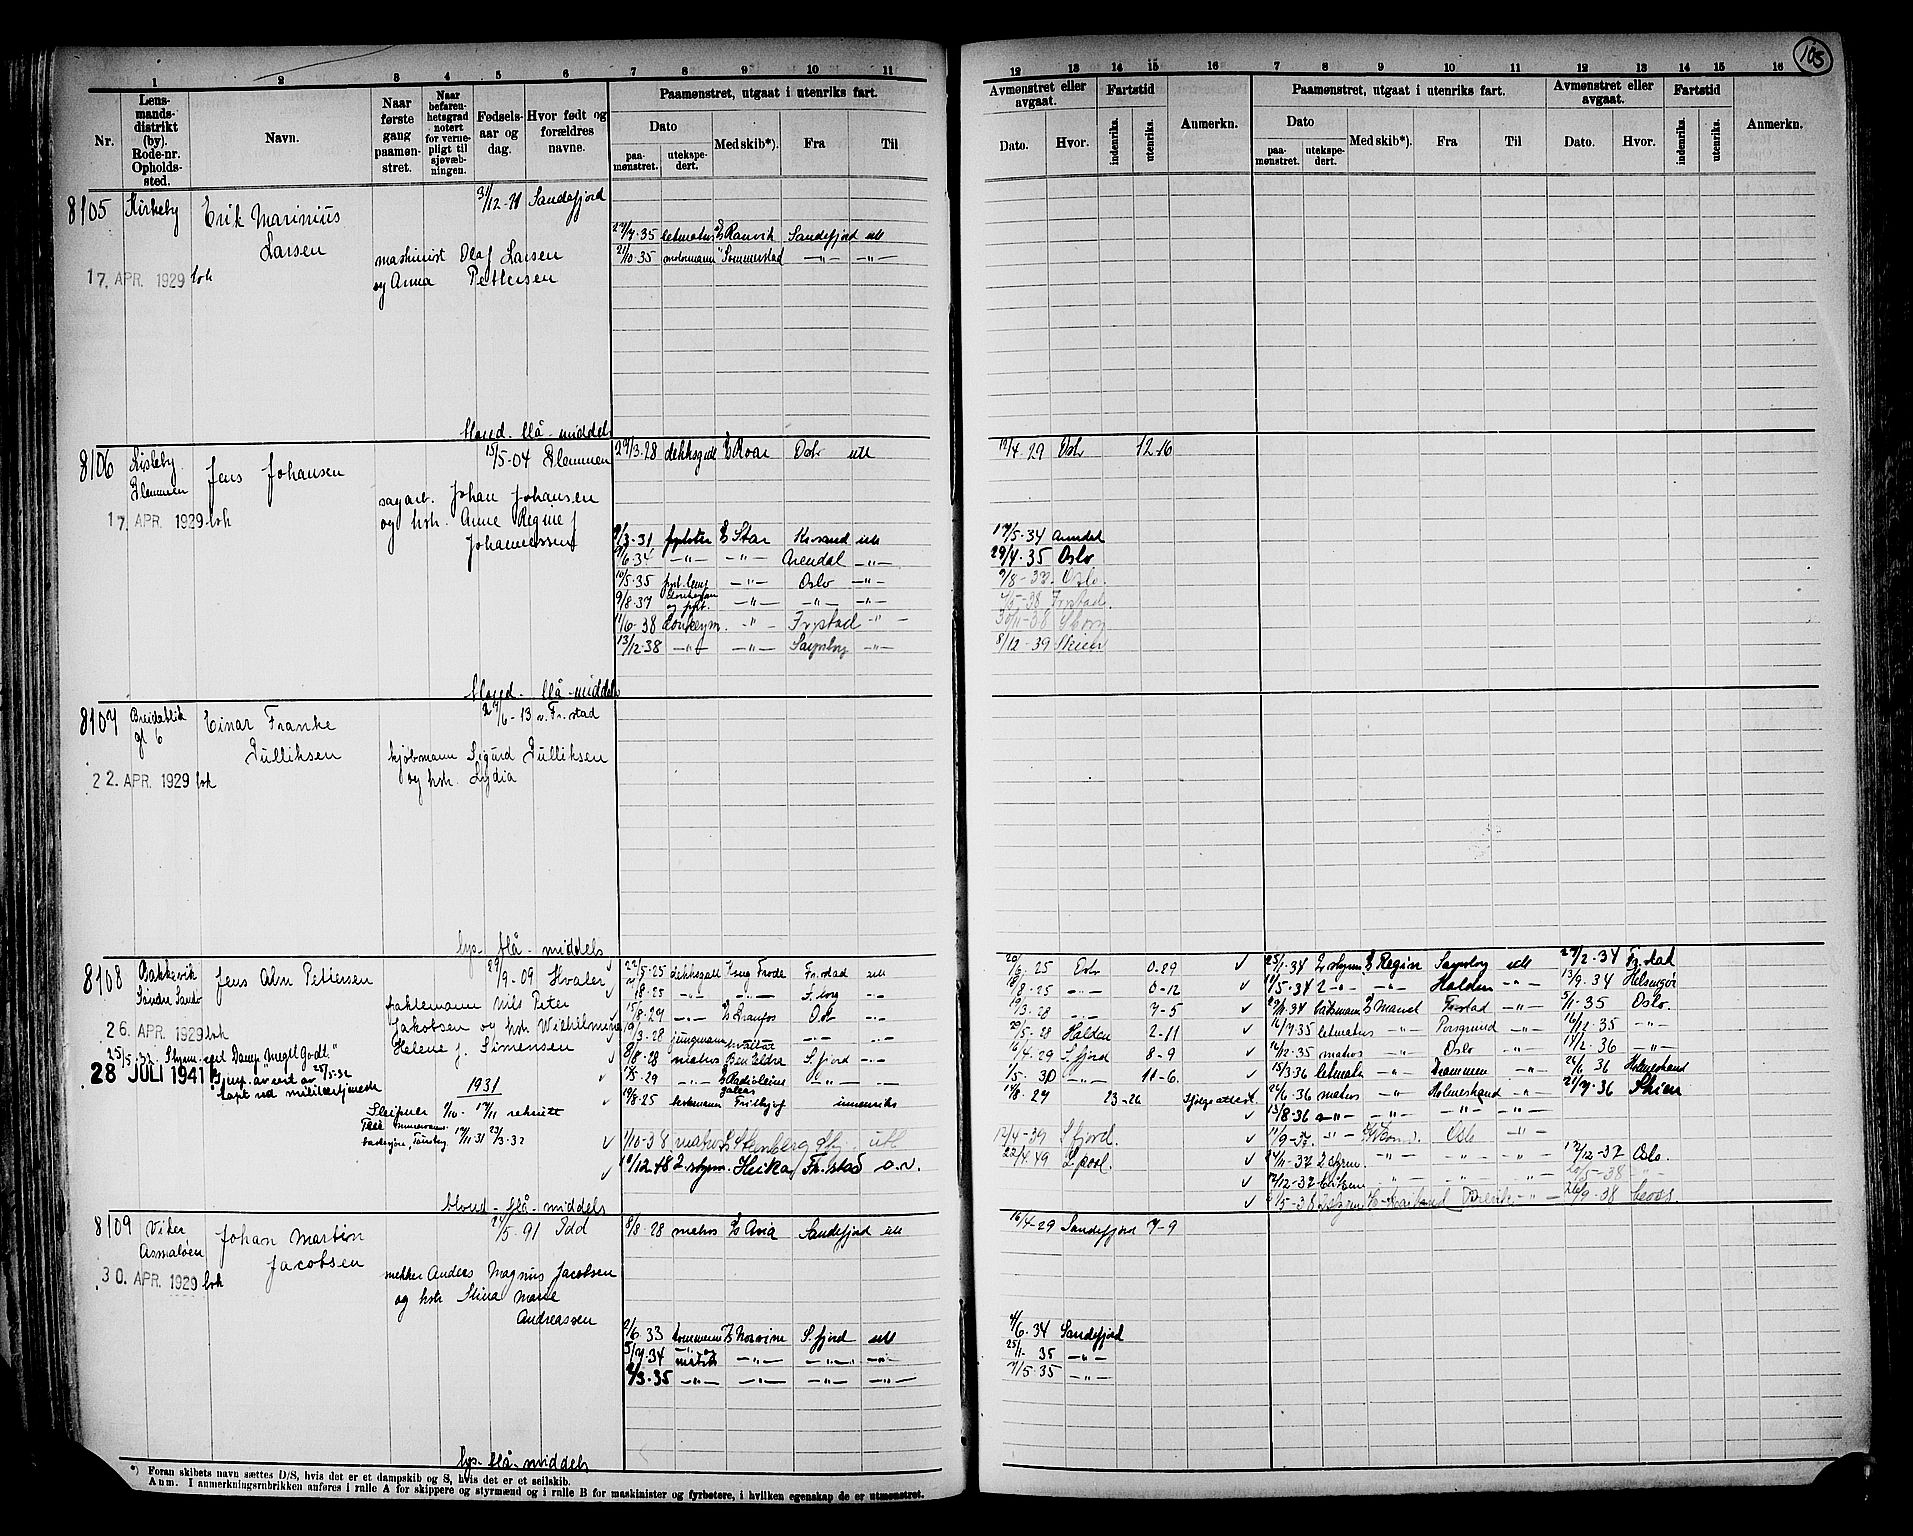 105
1 2 3 4 5 6 7 8 9 10 11
12 13 14 15 16 7 8 9 10 11 12 13 14 15 16
Nr.
Lensmandsdistrikt (by). Rode-nr. Opholdssted.
Navn.
Naar første gang paamønstret.
Naar befarenhetsgrad notert for vernepligt til sjøvæbningen.
Fødselsaar og dag.
Hvor født og forældres navne.
Paamønstret, utgaat i utenriks fart.
Dato
paamønstret.
utekspedert.
Med skib*).
Fra
Til
Avmønstret eller avgaat.
Dato.
Hvor.
Fartstid
indenriks.
utenriks.
Anmerkn.
Paamønstret, utgaat i utenriks fart.
Dato
paamønstret.
utekspedert.
Med skib*).
Fra
Til
Avmønstret eller avgaat.
Dato.
Hvor.
Fartstid
indenriks.
utenriks.
Anmerkn.
8105 Kirkeby Erik Marinius Larsen 31/12-11 Sandefjord
maskinist Olaf Larsen
og Anna Pettersen
17. APR. 1929
27/7.35 letmatros Ranvik Sandefjord utl
21/10.35 motormann Sommerstad -"- -"-
blond - blå - middels
8106 Lisleby Glemmen Jens Johansen 15/5-04 Glemmen
sagarb. Johan Johansen
og hstr. Anne Regine f
Johannessen
17. APR. 1929
27/3.28 dekksgutt Roar Oslo utl
12/4.29 Oslo 12-16
9/3-31 fyrbøter Star Kr.sand utl 17/5-34 Arendal
6.34 -"- -"- Arendal -"- 29/4.35 Oslo
10/5.35 -"- Oslo -"- 9/8-37. Oslo.
9/8.37 og fyrb. -"- -"- -"- -38 Frstad.
11/6.38 donkeym. -"- Frstad -"- 30/11-38 Sborg
13/12.38 -"- -"- Sarpsborg -"- 8/12-39 Skien
blond - blå - middels
8107 Breidablik gl 6 Einar Franke Gulliksen 27/6-13 v. Fr.stad
kjøbmann Sigurd Gulliksen
og hstr. Lydia
22. APR. 1929
lys - blå - middels
8108 Bakkevik Søndre Sandø Jens Alm Pettersen 29/9-09 Hvaler
fattemann Nils Peter
Jakobsen og hstr Wilhilmine
Helene f. Simensen
26. APR. 1929
25/5.32 Styrm. cert Damp "Meget Godt"
28 JULI 1941
tapt ved militærtjeneste
1931
Sleipner 9/10- 17/11 rekrutt
17/11 31 23/3.32
22/5-25 dekksgutt Kong Frode Fr.stad utl 20/6.25 Oslo 0-29
/8-25 -"- -"- F.borg -"- 18/8-25 -"- 0-12
15/8-29 -"- Oslo -"- 19/3-28 -"- 7-5
/3-28 jungmann -"- 20/5-28 Halden 2-11
8/8-28 matros S.fjord -"- 16/4-29 S.fjord 8-9
/5-29 -"- -"- 1/5-30 -"- 11-6.
19/8-25 Fritjof innenriks 14/8-27 23-26
1/10-38 matros Stenberg utl 12/4-39 S.fjord.
18/12.48 2 styrm. Heika Fr.stad o.v. 22/4.49 L.pool.
25/1-34 2 styrm Regin Sarpsborg utl 27/2-34 Fr.stad
1/5-34 2 -"- -"- Halden -"- 13/9-34 Helsingør
/11-34 båtsmann Frstad -"- 5/1-35 Oslo.
16/7.35 letmatros -"- Porsgrund -"- 16/12-35 -"-
16/12.35 matros -"- Oslo -"- 14/2-36 -"-
13/3.36 -"- Drammen -"- 26/6.36 Holmestrand
26/6-36 matros -"- Holmestrand -"- 21/7.36 Skien
13/8-36 -"- -"- -"- -"-
11/9-37 -"- Oslo -"-
24/11-37 2 styrm. " " " 17/12-37 Oslo.
17/12-37 " " " -38 "
1/5-38 Brevik -"- 26/9-38
blond - blå - middels
8109 Viker Asmaløen Johan Martin Jacobsen 24/5-91 Idd
mekker Anders Magnus Jacobsen
og hstr Stina Marie
Andreassen
30. APR. 1929
8/8-28 matros Avia Sandefjord utl 16/4-29 Sandefjord 7-9
2/6.33 Norvine S.fjord utl 4/6.34 Sandefjord
5/7.34 matros -"- -"- -"- 25/1- 35 -"-
/3.35 -"- -"- -"- -"- 7/5.35 -"-
lys - blå - middels
*) Foran skibets navn sættes D/S, hvis det er et dampskib og S, hvis det er et seilskib.
Anm. I anmerkningsrubrikken anføres i rulle A for skippere og styrmænd og i rulle B for maskinister og fyrbøtere, i hvilken egenskap de er utmønstret.